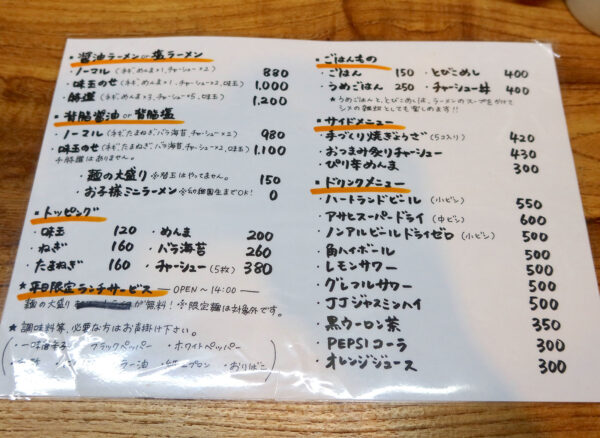 ・醤油ラーメン or 塩ラーメン
・ノーマル (ネギ、めんま×1、チャーシュー×2) 880
・味玉のせ (ネギ、めんま×1、チャーシュー×2、味玉) 1,000
・勝道 (ネギ、めんま×3、チャーシュー×5、味玉) 1,200
・背脂醤油 or 背脂塩
・ノーマル (ネギ、たまねぎ、バラ海苔、チャーシュー×2) 980
・味玉のせ (ネギ、たまねぎ、バラ海苔、チャーシュー×2、味玉) 1,100
はありません。
・麺の大盛り ※替玉はやってません。 150
・お子様ミニラーメン ※幼稚園生までOK! 0
・トッピング
・味玉 120 ・めんま 200
・ねぎ 160 ・バラ海苔 260
・たまねぎ 160 ・チャーシュー(5枚) 380
★平日限定ランチサービス OPEN〜14:00
麺の大盛り が無料! ※限定麺は対象外です。
★調味料等、必要な方はお声掛け下さい。
ブラックペッパー ・ホワイトペッパー
ラー油 ・おりばこ
・ごはんもの
・ごはん 150 ・とびこめし 400
・うめごはん 250 ・チャーシュー丼 400
★うめごはんと、とびこめしは、ラーメンのスープをかけて
シメの雑炊としても楽しめます!!
・サイドメニュー
・手づくり焼きぎょうざ(5コ入り) 420
・おつまみ炙りチャーシュー 430
・ぴり辛めんま 300
・ドリンクメニュー
・ハートランドビール (小ビン) 550
・アサヒスーパードライ (中ビン) 600
・ノンアルビールドライゼロ (小ビン) 500
・角ハイボール 500
・レモンサワー 500
・グレフルサワー 500
・JJジャスミンハイ 500
・黒ウーロン茶 350
・PEPSIコーラ 300
・オレンジジュース 300